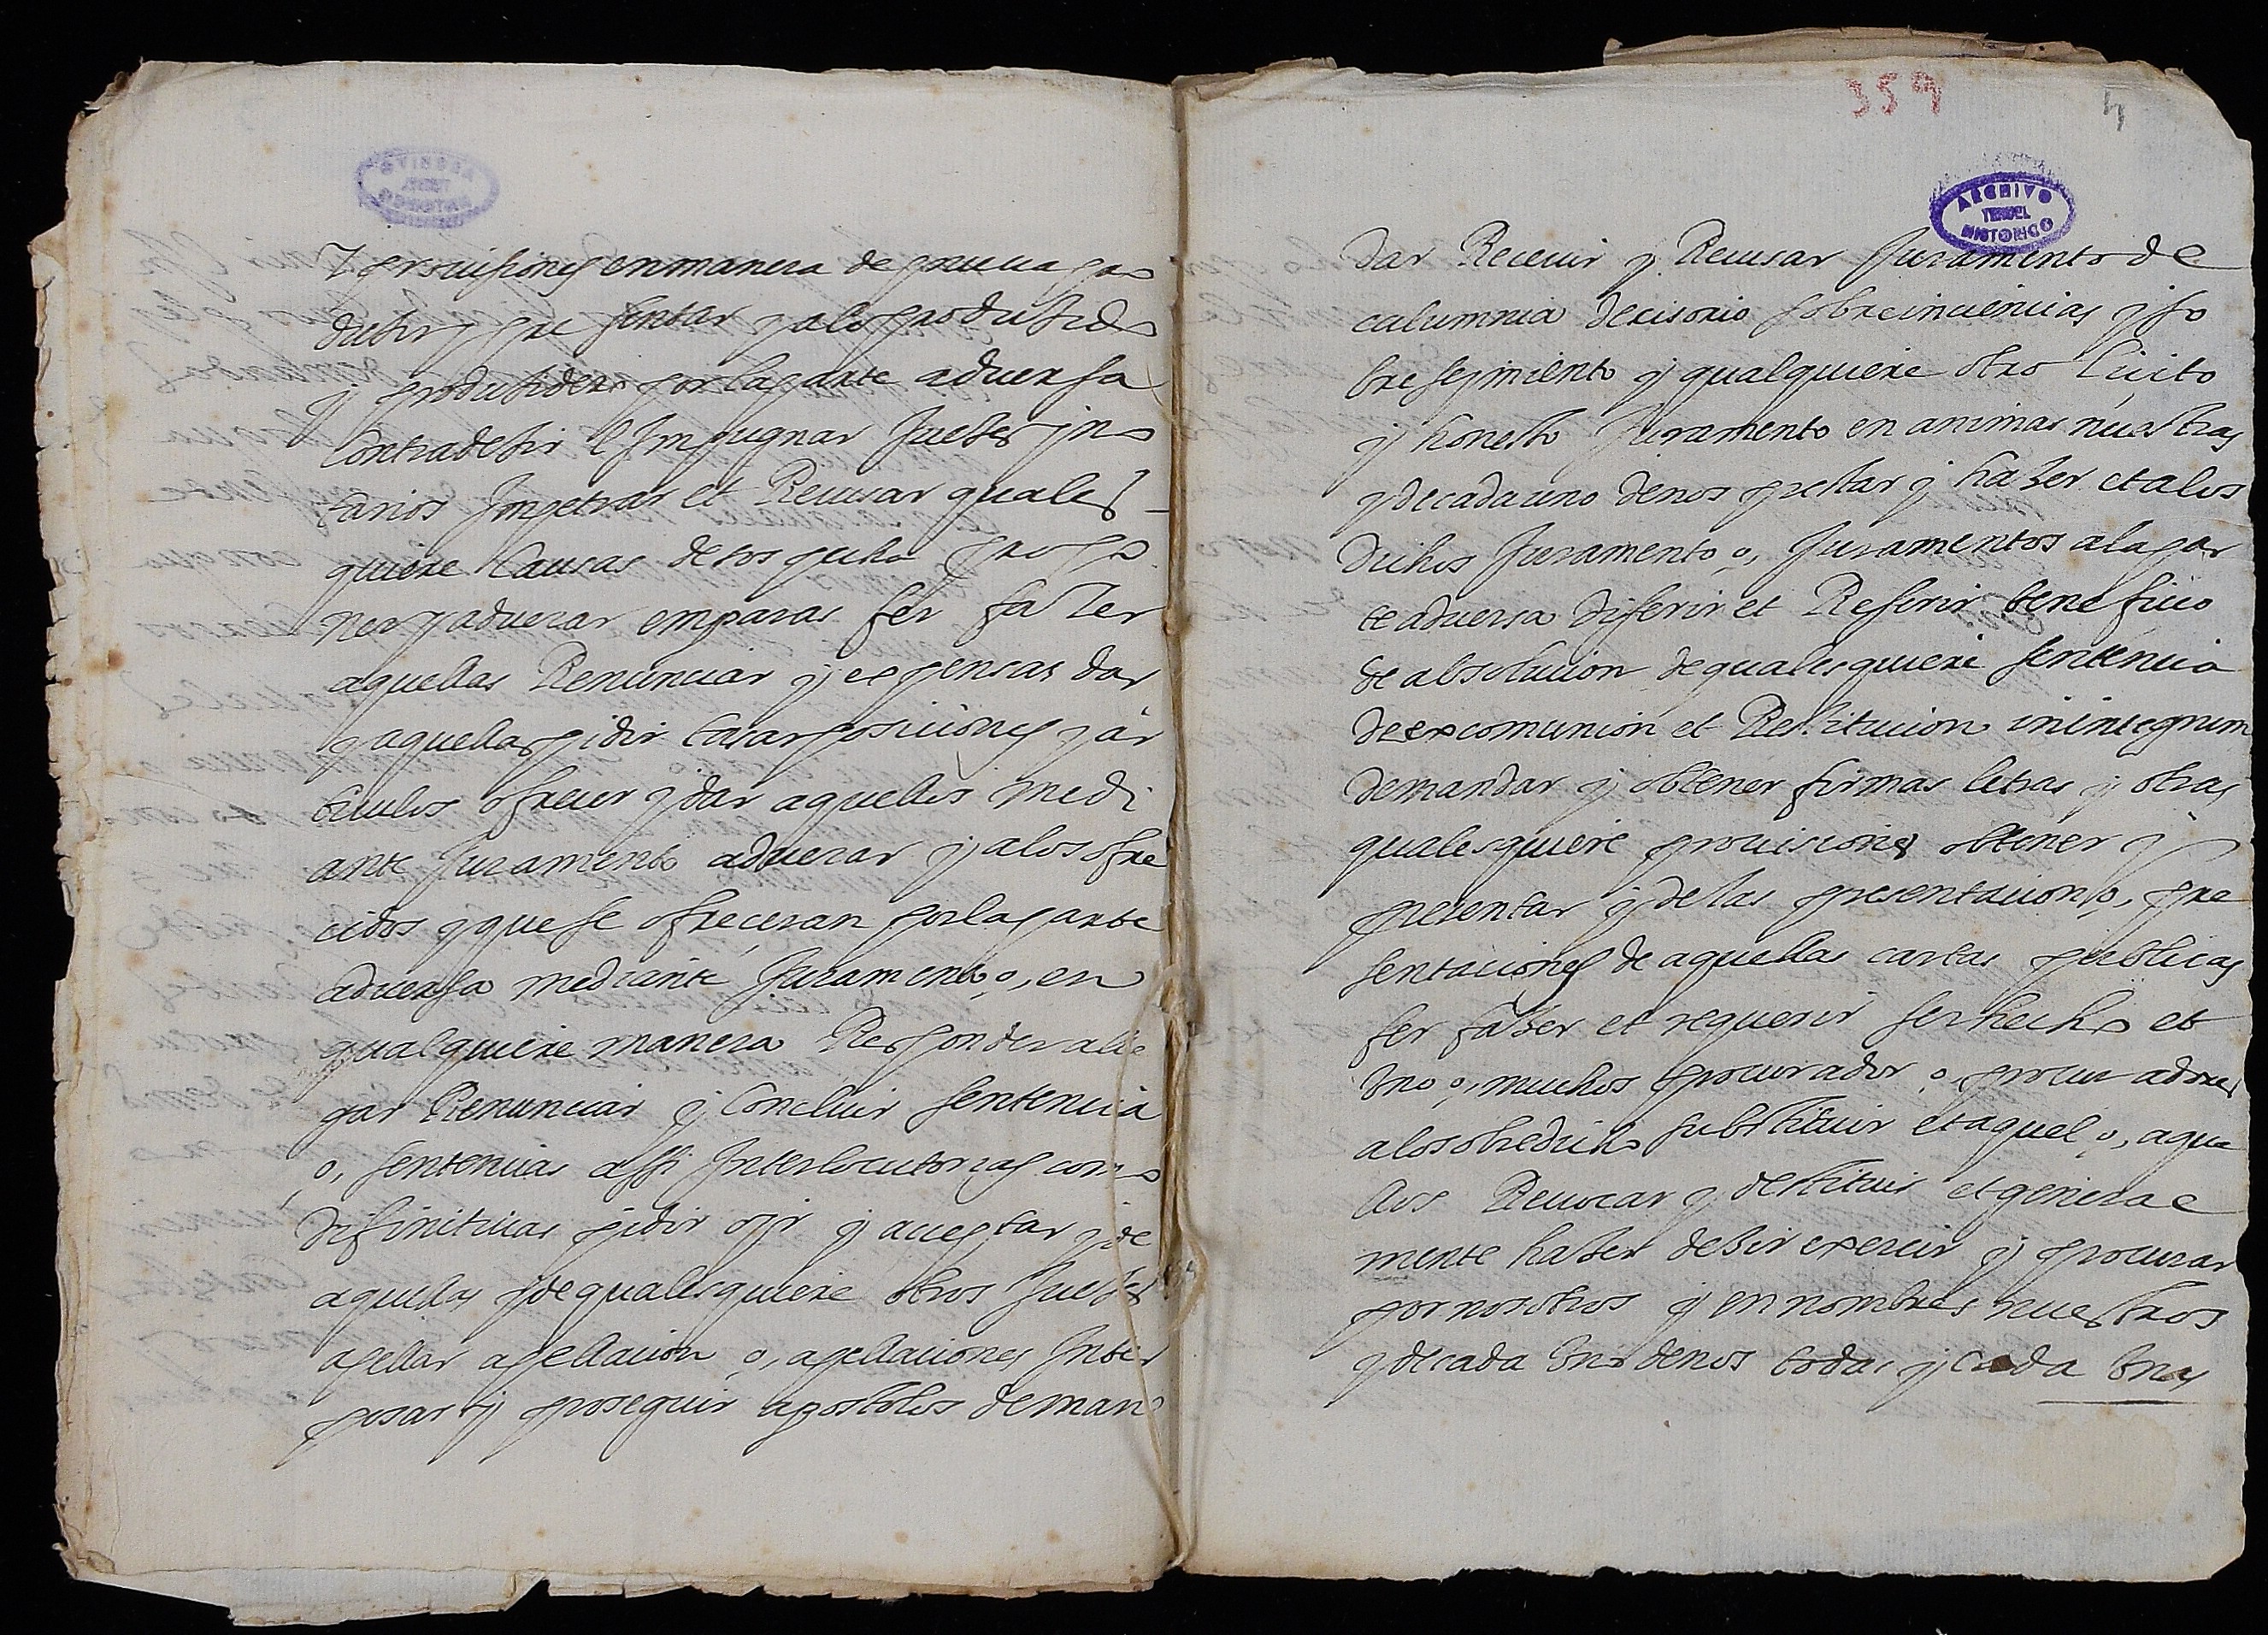 y provisiones en manera de prueua pro
duzir y pre sentar y alo produzido
y produzidero por la parte aduersa
Contradezir e Impugnar Juezes y no
tarios Impetrar et Recusar quales
quiere Causas de sospecha propo
ner y aduerar emparas fer fazer
aquellas Renunciar y expensas dar
y aquellas pidir tasar posiciones y ar
ticulos ofrecer y dar aquellos medi
ante Juramento aduerar y a los ofre
cidos y que se ofreceran por la parte
aduersa mediante Juramento o, en
qualquiere manera Responder alle
gar Renunciar y Concluir sentencia
o, sentencias assi Interlocutorias como
difinitiuas pidir oyr y acceptar y de
aquellas y de qualesquiere otros Juezes
apellar apellacion o, apellaciones Inter
posar y proseguir apostolos deman
359
4
ARCHIVO
TERUEL
HISTORICO
dar Receuir y Recusar Juramento de
calumnia decisorio sobre incidencias y so
bre seymiento y qualquiere otro licito
y honesto Juramento en animas nuestras
y de cada uno de nos prestar y hazer et a los
dichos Juramento o, Juramentos a la par
te aduersa diferir et Referir beneficio
de absolucion de qualesquiere sentencia
de excomunion et Restitucion in integrum
demandar y obtener firmas letras y otras
qualesquiere prouisiones obtener y
presentar y de las presentacion o, pre
sentaciones de aquellas cartas publicas
fer fazer et requerir ser hecho et
Vno o, muchos procurador o procuradores
a lo sobredicho substituir et aquel o, aque
llos Reuocar y destituir et general
mente hazer dezir exercir y procurar
por nosotros y en nombres nuestros
y de cada Vno de nos todas y cada Vnas